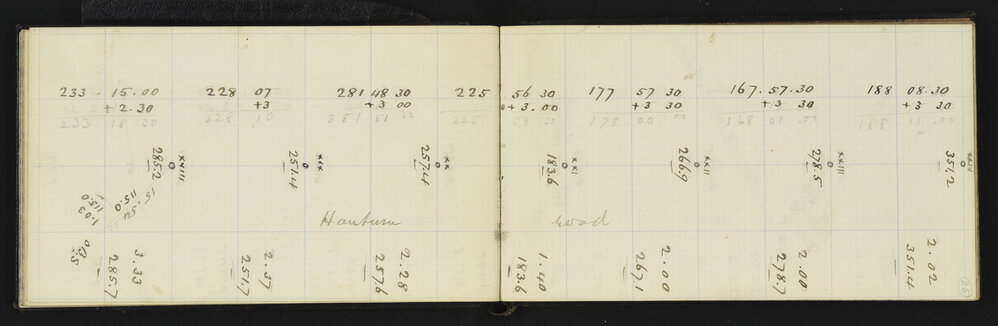 233 . 15.00
+ 2.30
233 18 30
228 07
+3
228 10
281 48 30
+3 00
281 51 30
225 56 30
+3.00
225 59 30
177 57 30
+3 30
178 00 .00
167.57.30
+3 30
168 01 .00
188 08.30
+3 30
188 11 .00
xviii
285.2
xix
251.4
xx
257.4
xxi
183.6
xxii
266.9
xxiii
278.5
xxiv
351.2
15.54
115.0
115.0
1.03
road
0.3
.5
3.33
285.7
2.07
251.7
2.28
257.6
1.40
183.6
2.00
267.1
2.00
278.7
2.02
351.4